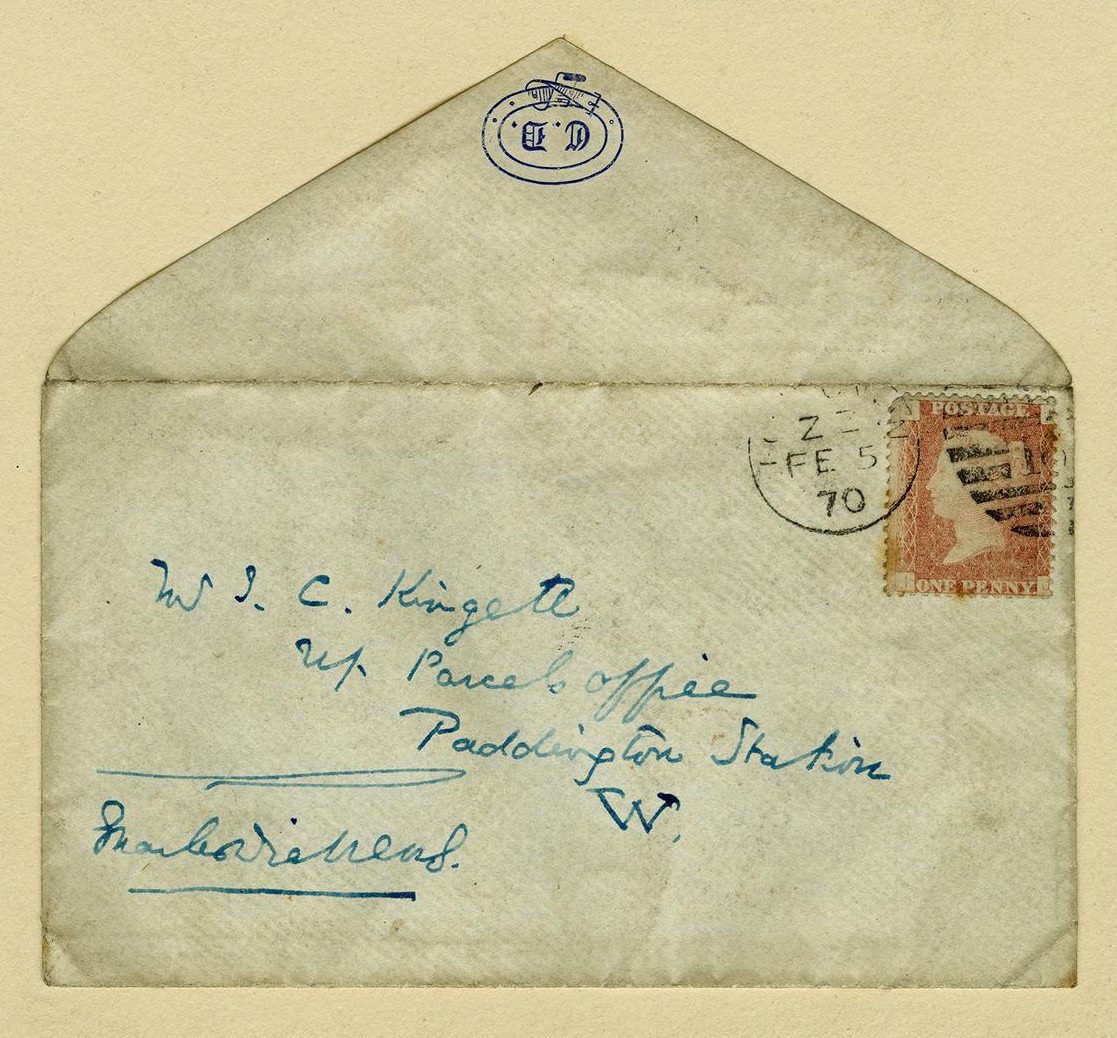 C. D.
POSTAGE
FE 5
70
ONE PENNY
Mr J. C. Kingett
Up Parcels office
Paddington Station
W.
Charles Dickens.